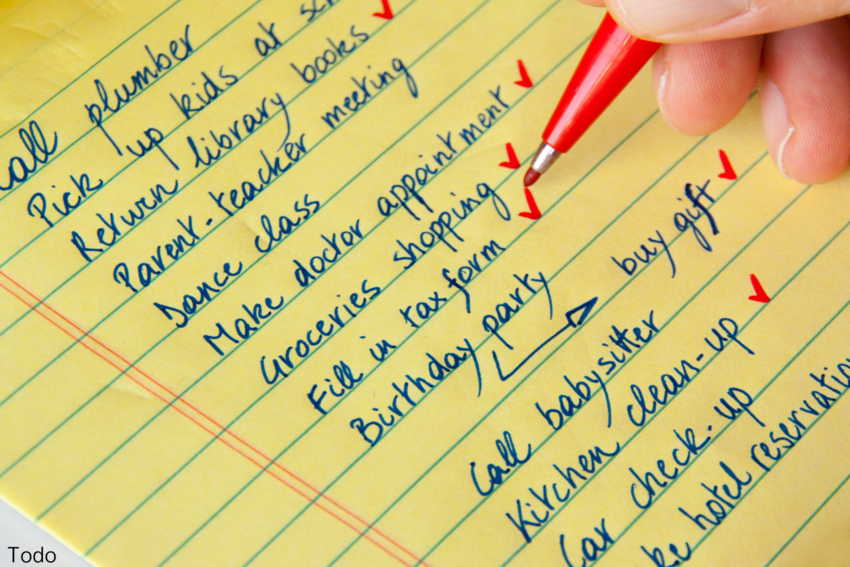 call plumber
Pick up kids at
Return library books
Parent-teacher meeting
Dance class
Make doctor appointment
Groceries shopping
Fill in tax form
Birthday party
buy gift
Call babysitter
Kitchen clean-up
Car check-up
hotel reservatio
Todo